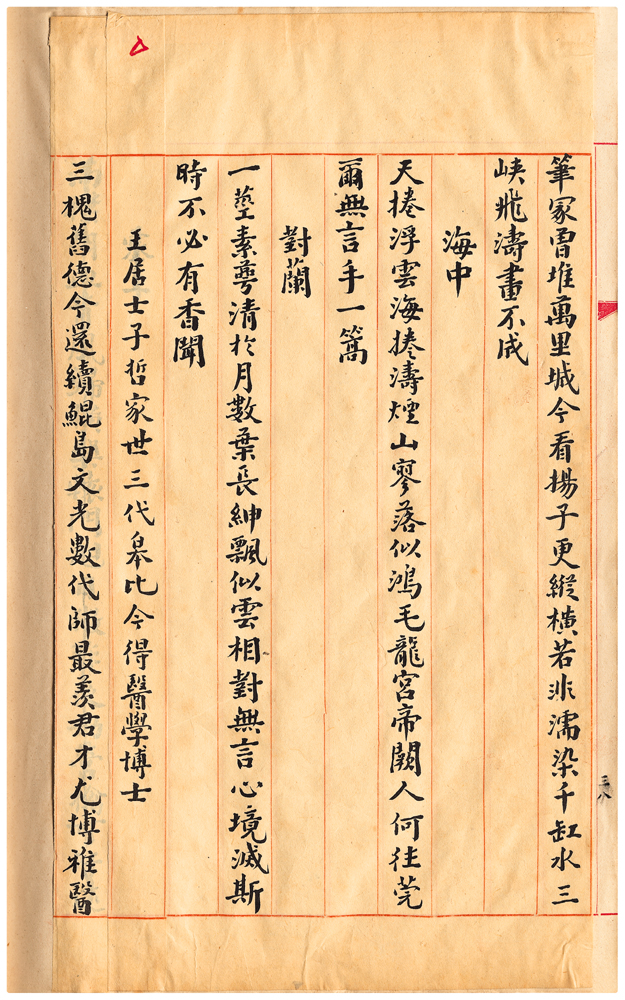 筆冢曾堆萬里城今看揚子更縱橫若非濡染千缸水三
峽飛濤畫不成
海中
天捲浮雲海捲濤煙山寥落似鴻毛龍宮帝闕人何往莞
爾無言手一篙
對蘭
一莖素萼清於月數葉長紳飄似雲相對無言心境滅斯
時不必有香聞
王居士子哲家世三代皋比今得醫學博士
三槐舊德今還續鯤島文光數代師最羨君才尤博雅醫
三八